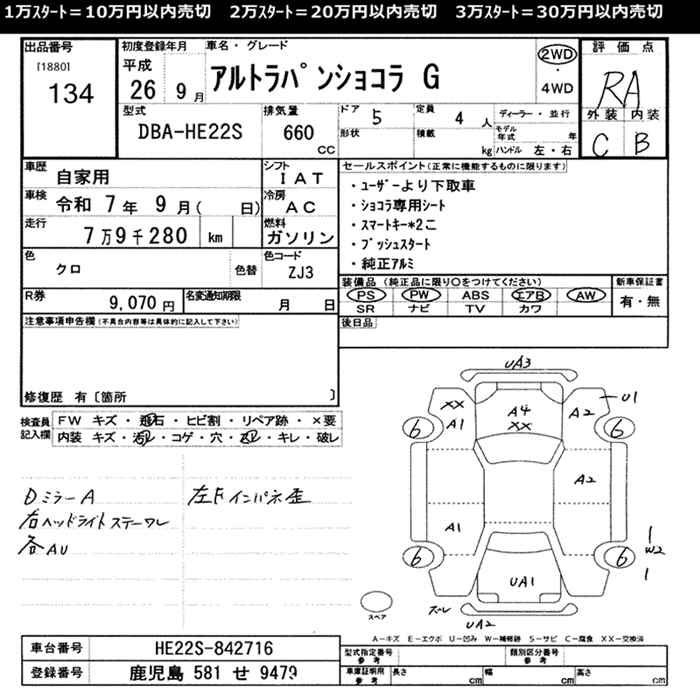 1万ｽﾀｰﾄ＝10万円以内売切　2万ｽﾀｰﾄ＝20万円以内売切　3万ｽﾀｰﾄ＝30万円以内売切
出品番号
[1880]
134
初度登録年月
平成
26 9月
車名・グレード
アルトラパンショコラ G
2WD
・
4WD
評価点
RA
外装 内装
C B
型式
DBA-HE22S
排気量
660
CC
ドア
5
定員
4 人
形状
積載
kg
ディーラー・並行
モデル年式
年
ハンドル 左・右
車歴
自家用
シフト
IAT
車検
令和 7年 9月( 日)
冷房
AC
走行
7万9千280 km
燃料
ガソリン
色
クロ
色替
色コード
ZJ3
R券
9,070 円
名変通知期限
月 日
セールスポイント(正常に機能するものに限ります)
・ユーザーより下取車
・ショコラ専用シート
・スマートキー*2こ
・プッシュスタート
・純正アルミ
装備品 (純正品に限り○をつけてください)
PS PW ABS エアB AW
SR ナビ TV カワ
新車保証書
有・無
後日品
注意事項申告欄(不具合内容等は具体的に記入して下さい)
修復歴 有〔箇所 〕
検査員記入欄
FW キズ・飛石・ヒビ割・リペア跡・×要
内装 キズ・汚レ・コゲ・穴・スレ・キレ・破レ
DミラーA
右ヘッドライトステーワレ
各AU
左Fインパネ歪
UA3
XX
A1
A4
XX
A2
U1
6
6
A2
A1
6
6
W2
UA1
UA2
スペア
A－キズ E－エクボ U－凹み W－補修跡 S－サビ C－腐食 XX－交換済
車台番号
HE22S-842716
登録番号
鹿児島 581 せ 9479
型式指定番号
参考
類別区分番号
参考
車庫証明用
参考
長さ
cm
幅
cm
高さ
cm